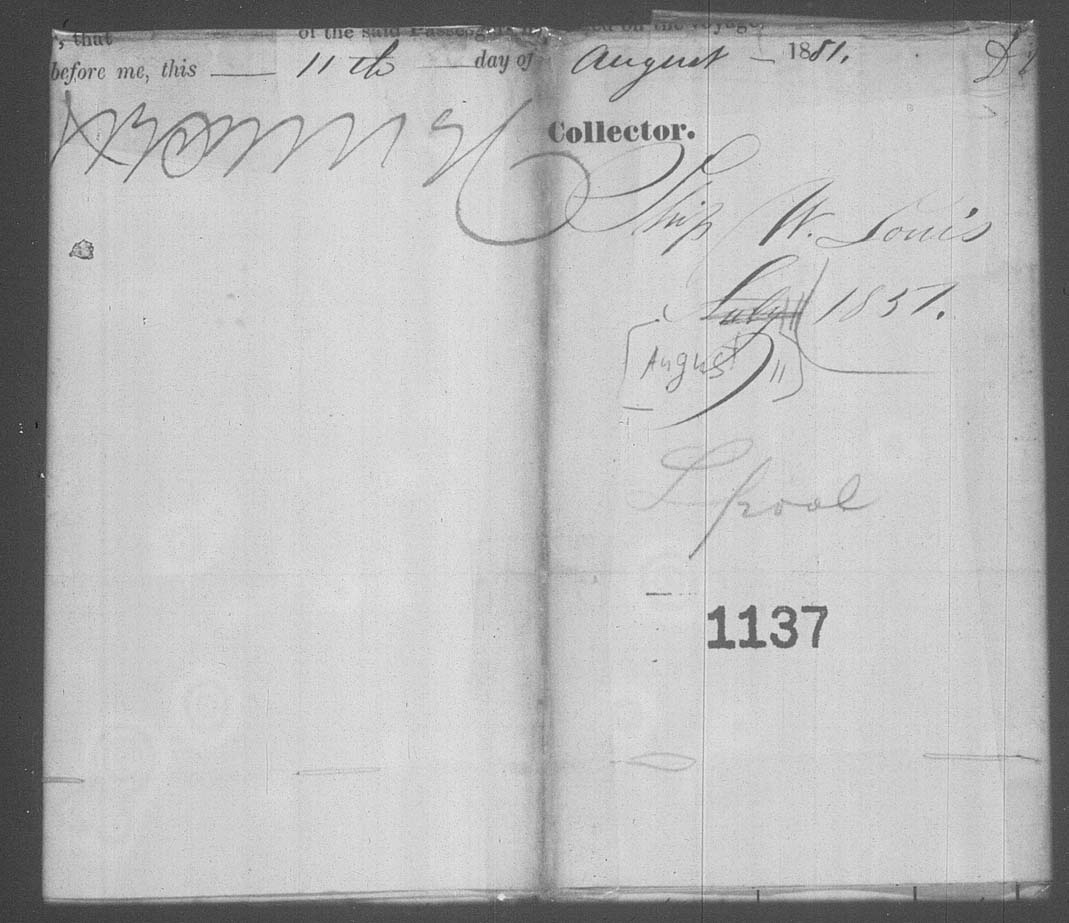 , that of the said Passengers on the voyage,
before me, this 11th day of August 1851. D
Collector.
Ship W. Louis
July 1851.
[August 11]
L pool
1137